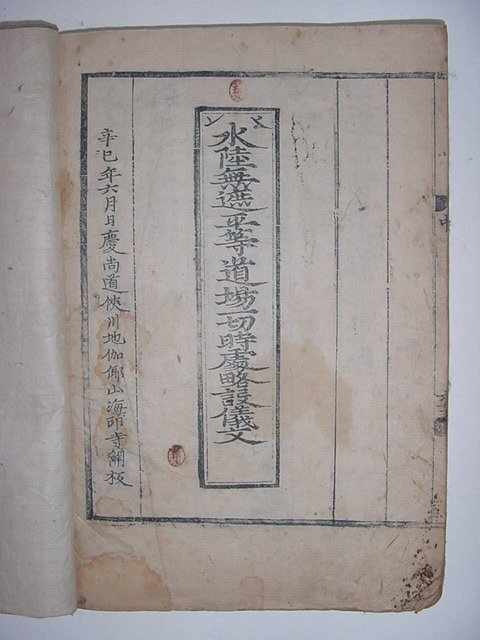 中
水陸無遮平等道場一切時處略設儀文
辛巳年六月日慶尚道俠川地伽倻山海印寺開板